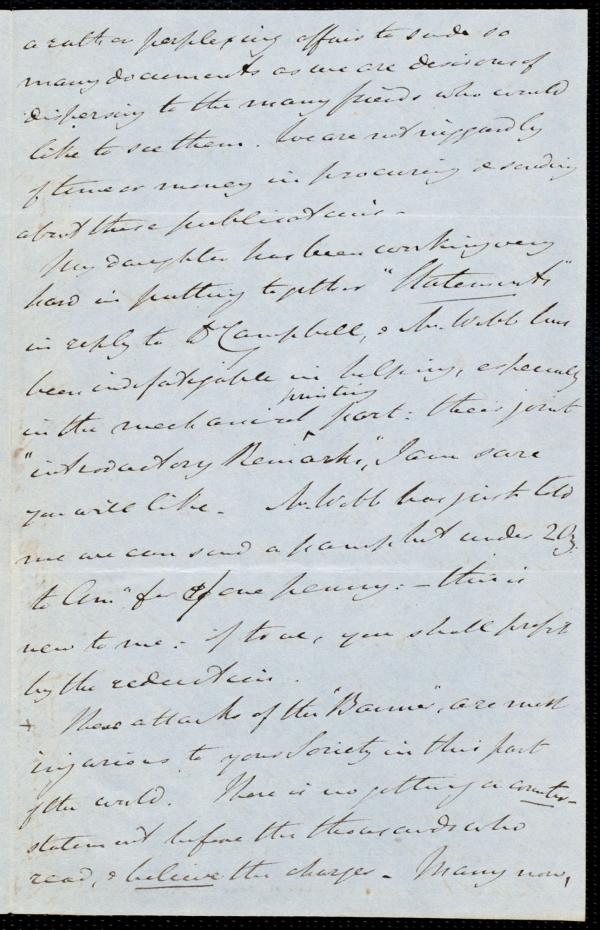 a rather perplexing affair to send so
many documents as we are desirous of
dispersing to the many friends who would
like to see them. We are not niggardly
of time or money in procuring & sending
about these publications -
My daughter has been working very
hard in putting together "Statements"
in reply to Dr Campbell, & Mr. Webb has
been indefatigable in helping, especially
in the mechanical printing part: their joint
"introductory Remarks," I am sure
you will like - Mr. Webb has just told
me we can send a pamphlet under 2 oz.
to Ama. for one penny: - this is
new to me - if true, you shall profit
by the reduction.
+ These attacks of the "Banner", are most
injurious to your Society in this part
of the world. There is no getting a counter-
statement before the thousands who
read, & believe the charges - Many now,